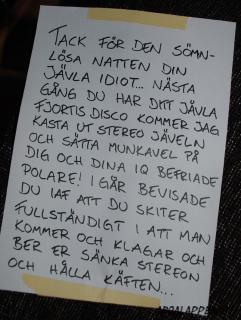 TACK FÖR DEN SÖMN-
LÖSA NATTEN DIN
JÄVLA IDIOT... NÄSTA
GÅNG DU HAR DITT JÄVLA
FJORTIS DISCO KOMMER JAG
KASTA UT STEREO JÄVELN
OCH SÄTTA MUNKAVEL PÅ
DIG OCH DINA IQ BEFRIADE
POLARE! I GÅR BEVISADE
DU IAF ATT DU SKITER
FULLSTÄNDIGT I ATT MAN
KOMMER OCH KLAGAR OCH
BER ER SÄNKA STEREON
OCH HÅLLA KÄFTEN...